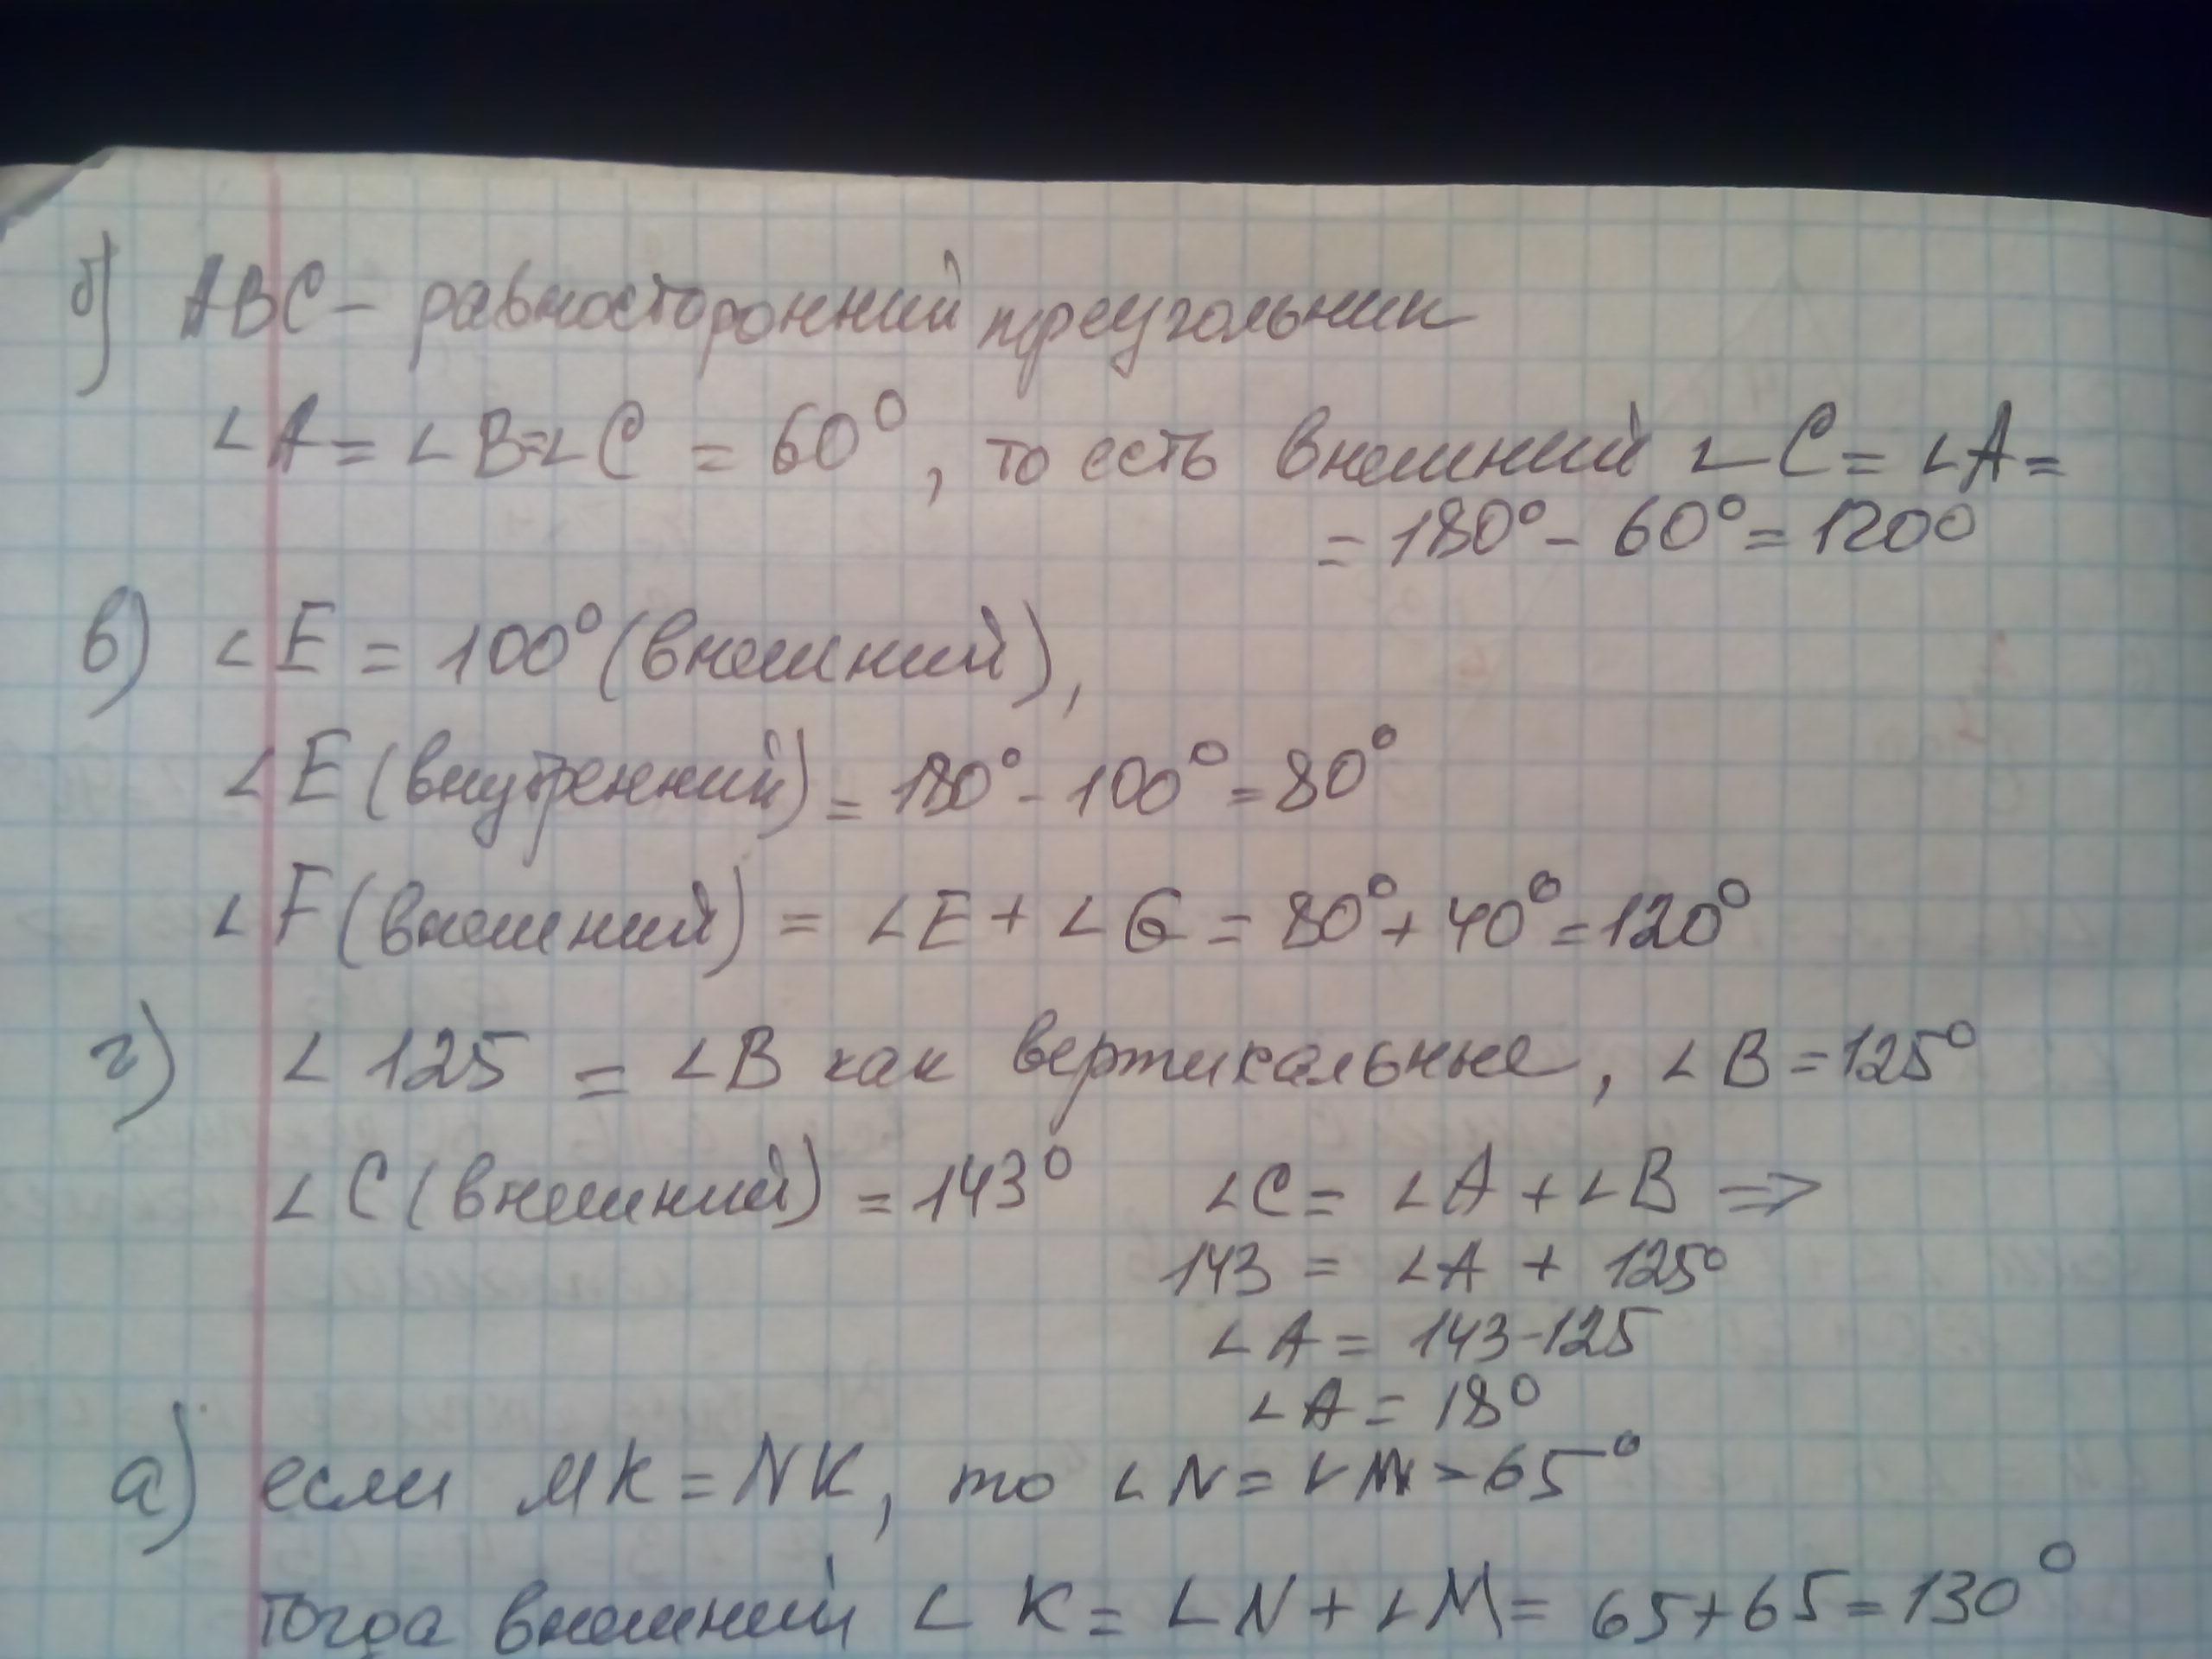 б) ABC – равносторонний треугольник
∠A = ∠B=∠C = 60°, то есть внешний ∠C = ∠A =
= 180° - 60° = 120°
в) ∠E = 100° (внешний),
∠E (внутренний) = 180° - 100° = 80°
∠F (внешний) = ∠E + ∠G = 80° + 40° = 120°
г) ∠ 125 = ∠B как вертикальные, ∠B = 125°
∠C (внешний) = 143° ∠C = ∠A + ∠B ⇒
143 = ∠A + 125°
∠A = 143-125
∠A = 18°
а) если MK = NK, то ∠N = ∠M = 65°
тогда внешний ∠K = ∠N + ∠M = 65+65 = 130°